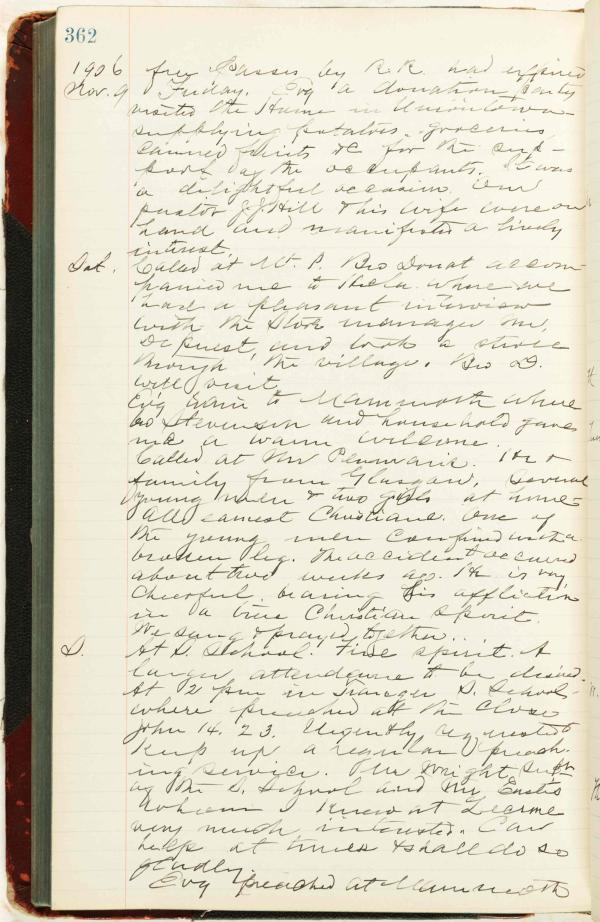 362
1906 free passes by R.R. had expired
Nov. 9 Friday. Evg a donation party
visited the Home in Uniontown
supplying potatoes, groceries,
canned fruits &c for the sup-
port of the occupants. It was
a delightful occasion. Our
pastor J.J. Hill & his wife were on
hand and manifested a lively
interest.
Sat. Called at Mt. P. Bro Donat accom-
panied me to Hecla where we
had a pleasant interview
with the store manager Mr.
and took a stroll
through the village. Bro D.
will visit.
Evg train to Mammoth where
Stevenson and household gave
me a warm welcome.
Called at Mr Penmans. He &
family from Glasgow, several
young men & two girls at home
All earnest Christians. One of
the young men confined with a
broken leg. The accident occurred
about two weeks ago. He is very
cheerful, bearing his affliction
in a true Christian spirit.
We sang & prayed together..
S. At S. School. Fine spirit. A
larger attendance to be desired.
At 2 pm in Trauger S. School-
where preached at the close
John 14. 23. Urgently requested to
keep up a regular preach-
ing service. Mr Wright Supt
of the S. School and Mr
whom I knew at
very much interested. Can
help at times & shall do so
gladly.
Evg preached at Mammoth